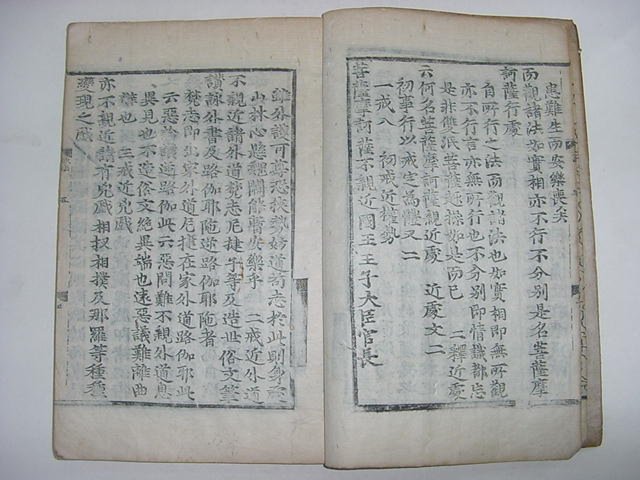 患難生而安樂喪矣
而觀諸法如實相亦不行不分別是名菩薩摩
訶薩行處
自所行之法而觀諸法也如實相即無所觀
亦不行言亦無所行也不分別即情識都忘
是非雙泯菩薩起操如是而已 二釋近處
云何名菩薩摩訶薩親近處文二
初事行以戒定爲體又二
一戒八 初戒近權勢
菩薩摩訶薩不親近國王王子大臣官長
雖外護可尊恐挾勢妨道苟志於此則身寄
山林心懸魏闕能嘗安樂乎 二戒近外道
不親近諸外道梵志尼揵子等及造世俗文筆
讚詠外書及路伽耶陀逆路伽耶陀者
梵志即出家外道尼揵在家外道路伽耶此
云惡論議逆路伽此云惡問難不親外道息
異見也不造俗文絕異端也遠惡議難離曲
辯也 三戒近兇戲
亦不親近諸有兇戲相扠相撲及那羅等種種
變現之戲